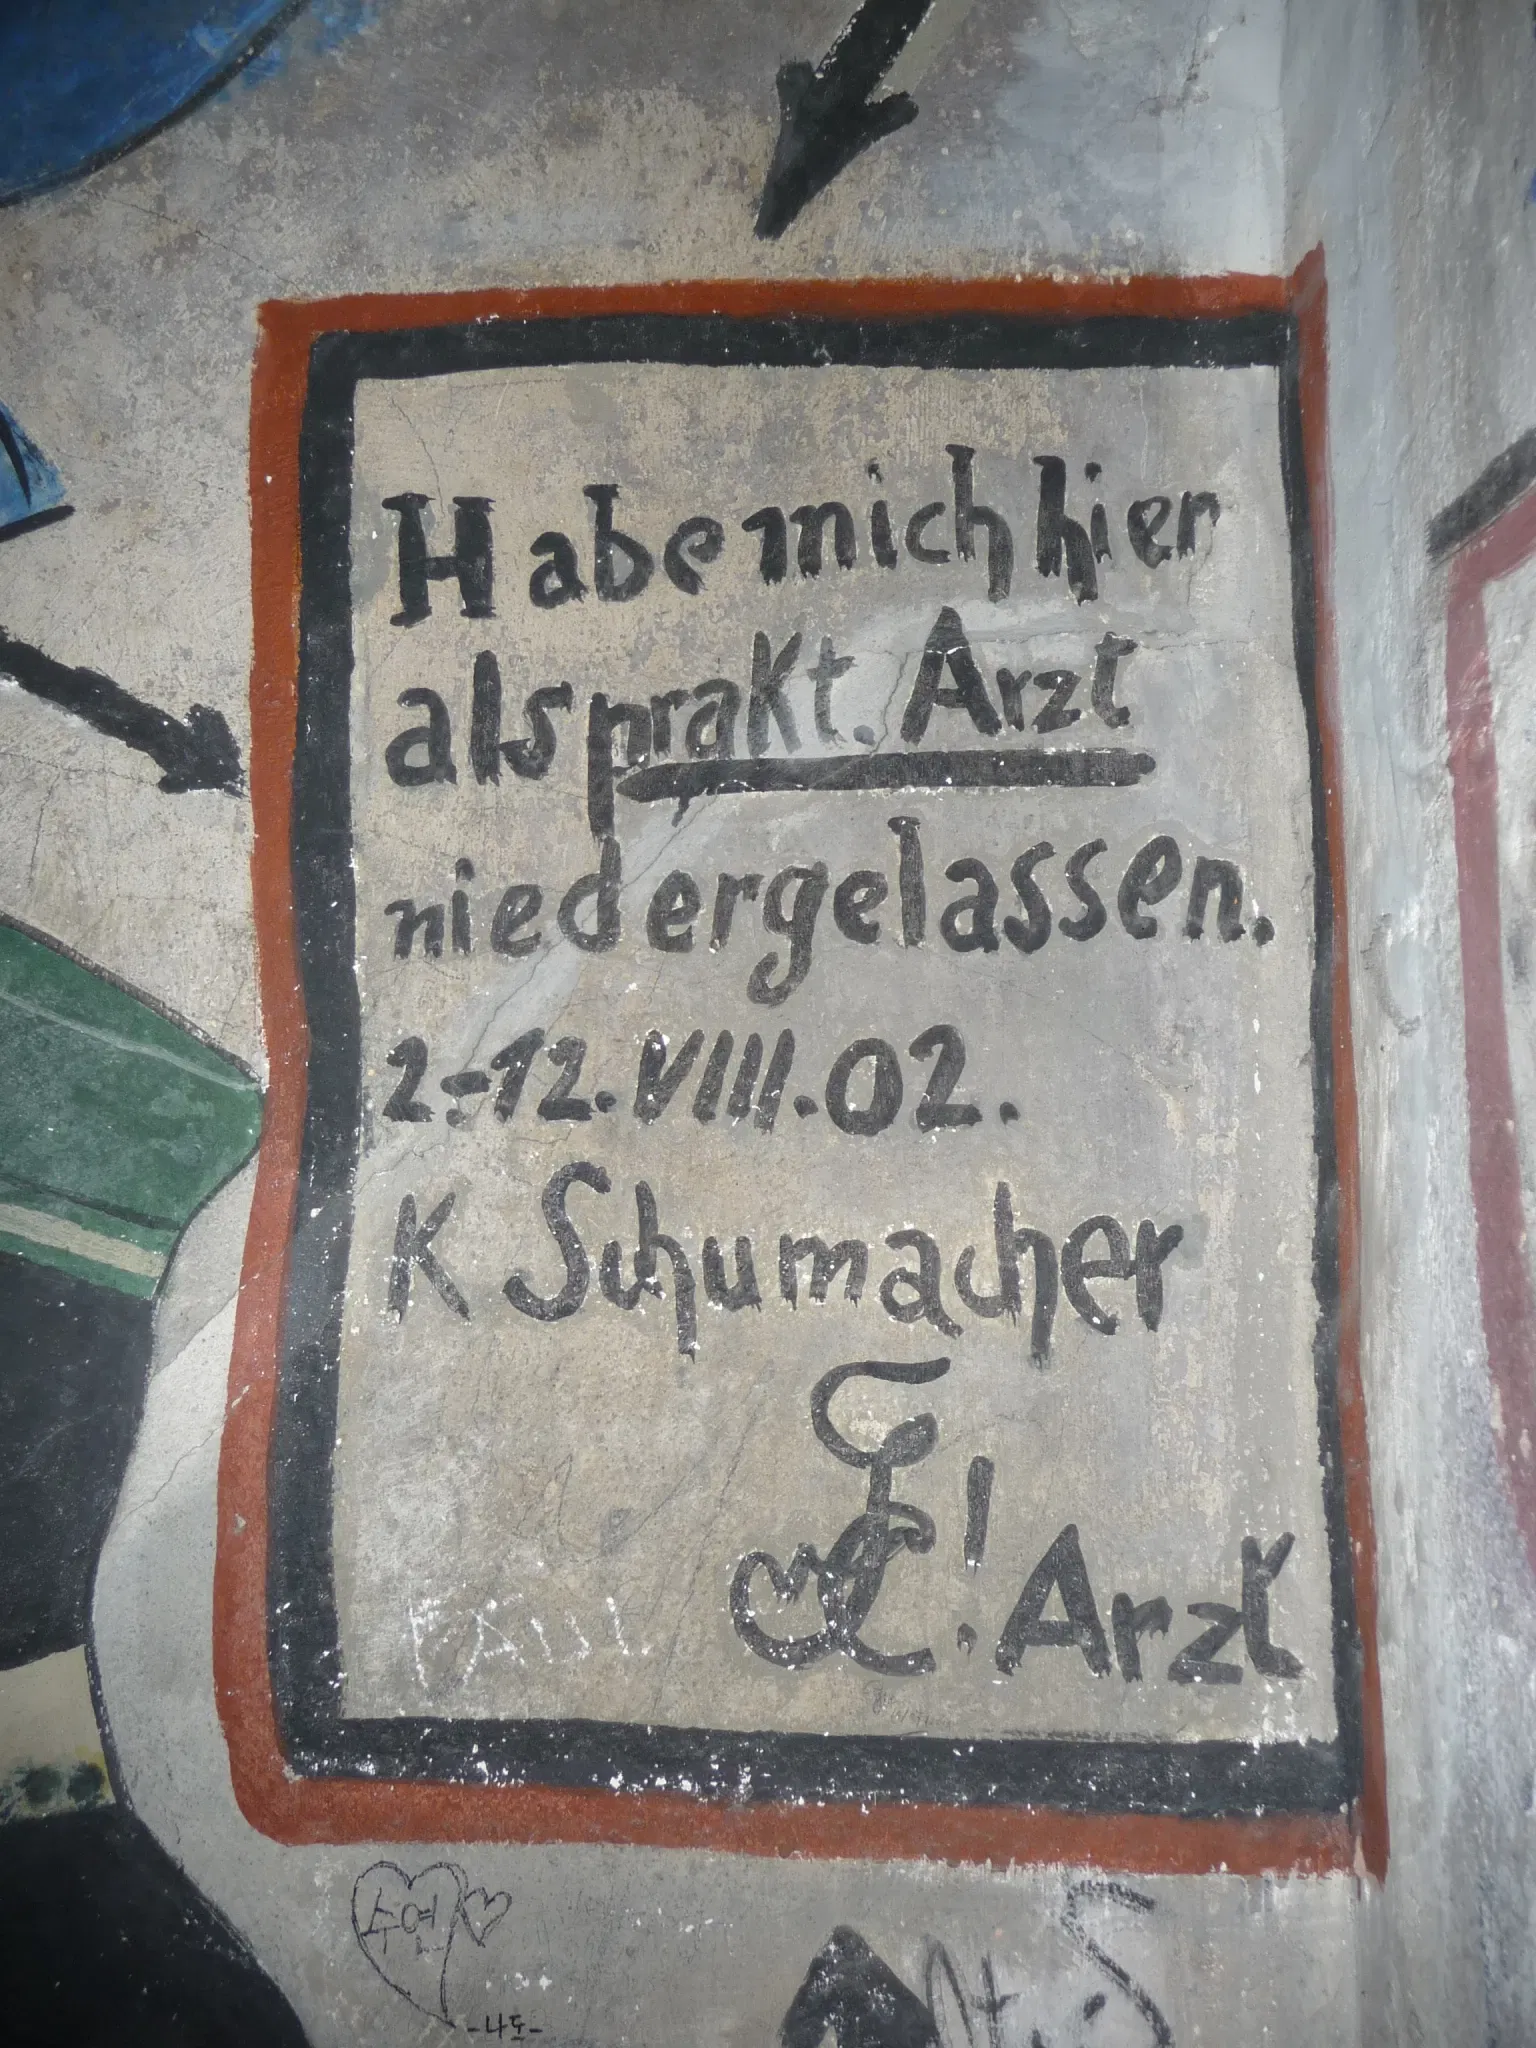 Habe mich hier
als prakt. Arzt
niedergelassen.
2-12.VIII.02.
K Schumacher
! Arzt
수연
-나도-